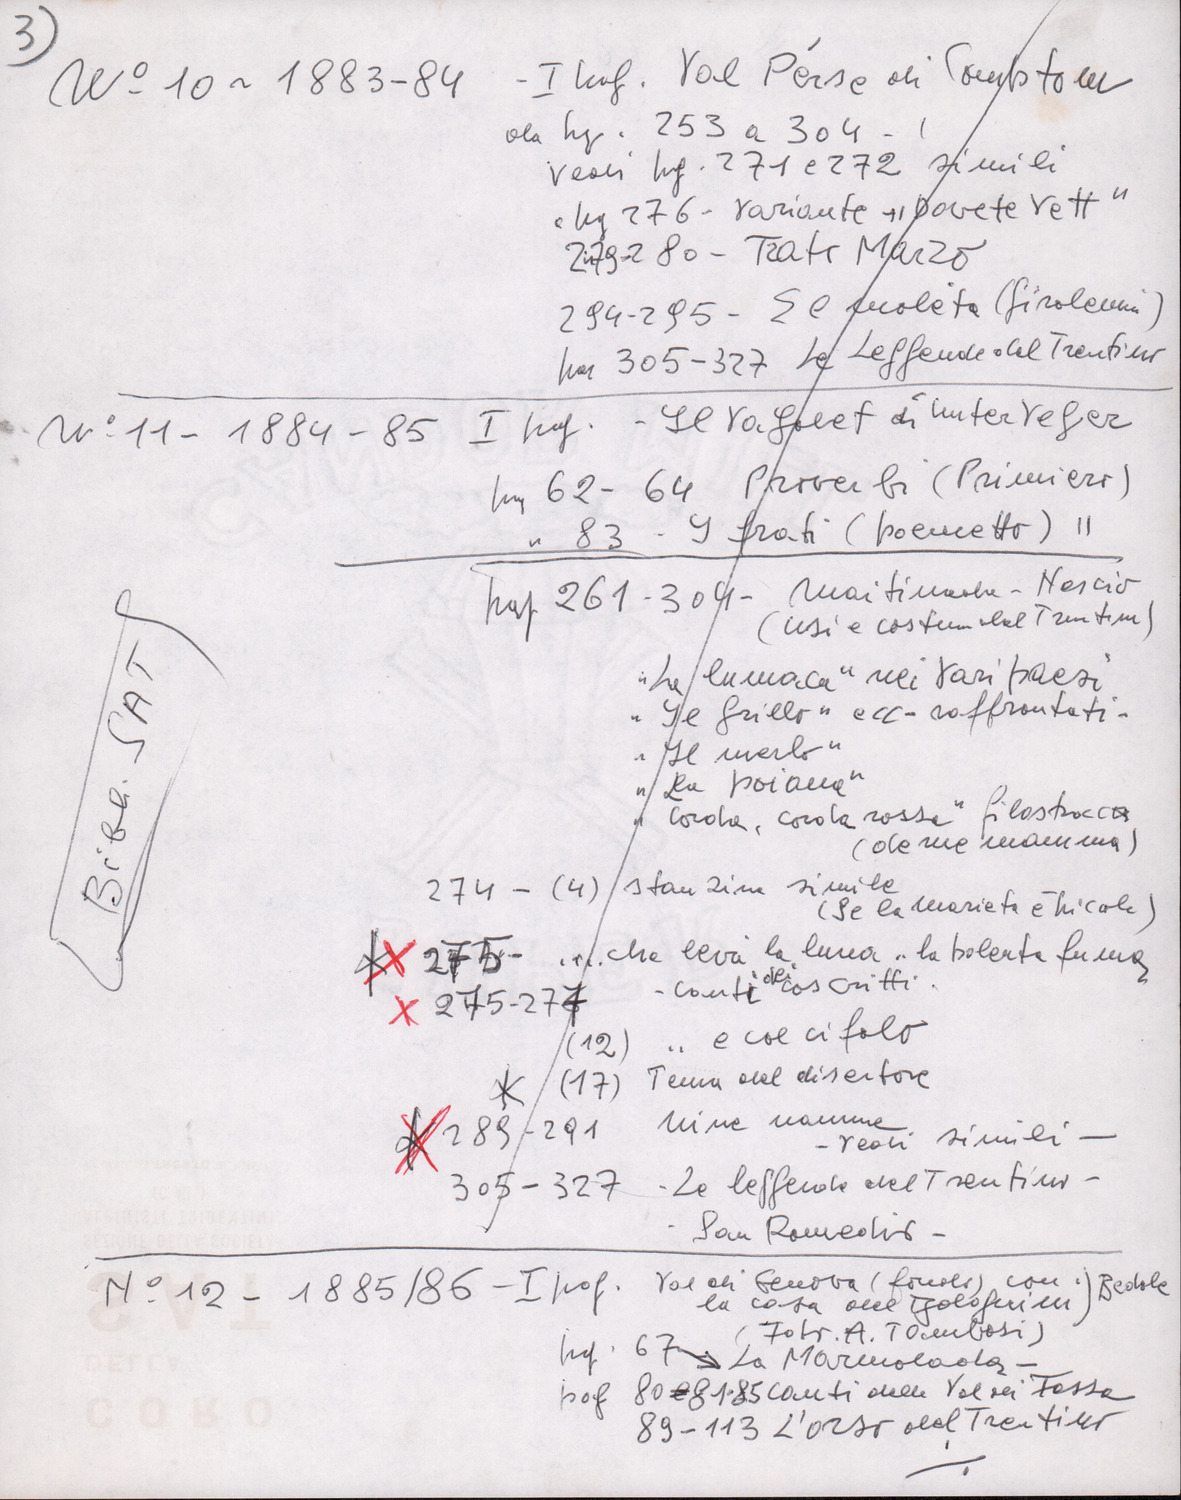 3)
N° 10 - 1883-84 - I pag. Val Pérse di
da pag. 253 a 304 -
vedi pag. 271 e 272 simili
" pag 276 - variante "povete Vett"
279-280 - Trato Marzo
294-295 - El molèta (Girolemin)
pag 305-327 Le Leggende del Trentino
N° 11 - 1884-85 I pag. - Il
pag 62-64 Proverbi (Primiero)
" 83 - I frati (poemetto) "
pag 261-304 - Maitinade - Noscio
(usi e costumi del Trentino)
"La lumaca" nei vari paesi
"Il grillo" ecc - raffrontati -
"Il merlo"
"La poiana"
"Corda, corda rossa" filastrocca
(de me mamma)
Bibl. SAT
274 - (4) stanzina simile
(Se la Marieta è picola)
275 - ... che leva la luna .. la polenta fuma
275-277 - canti dei coscritti.
(12) " e col cifolo
(17) Tema del disertore
289-291 Nine nanne
- vedi simili -
305-327 - Le leggende del Trentino -
- San Romedio -
N° 12 - 1885/86 - I pag. Val di Genova (fondo) con
la casa del Bedole
(Foto. A. Tambosi)
pag. 67 La Marmolada -
pag 80 81-85 Canti della Val di Fassa
89-113 L'orso del Trentino
SAT
DELLA
CORO